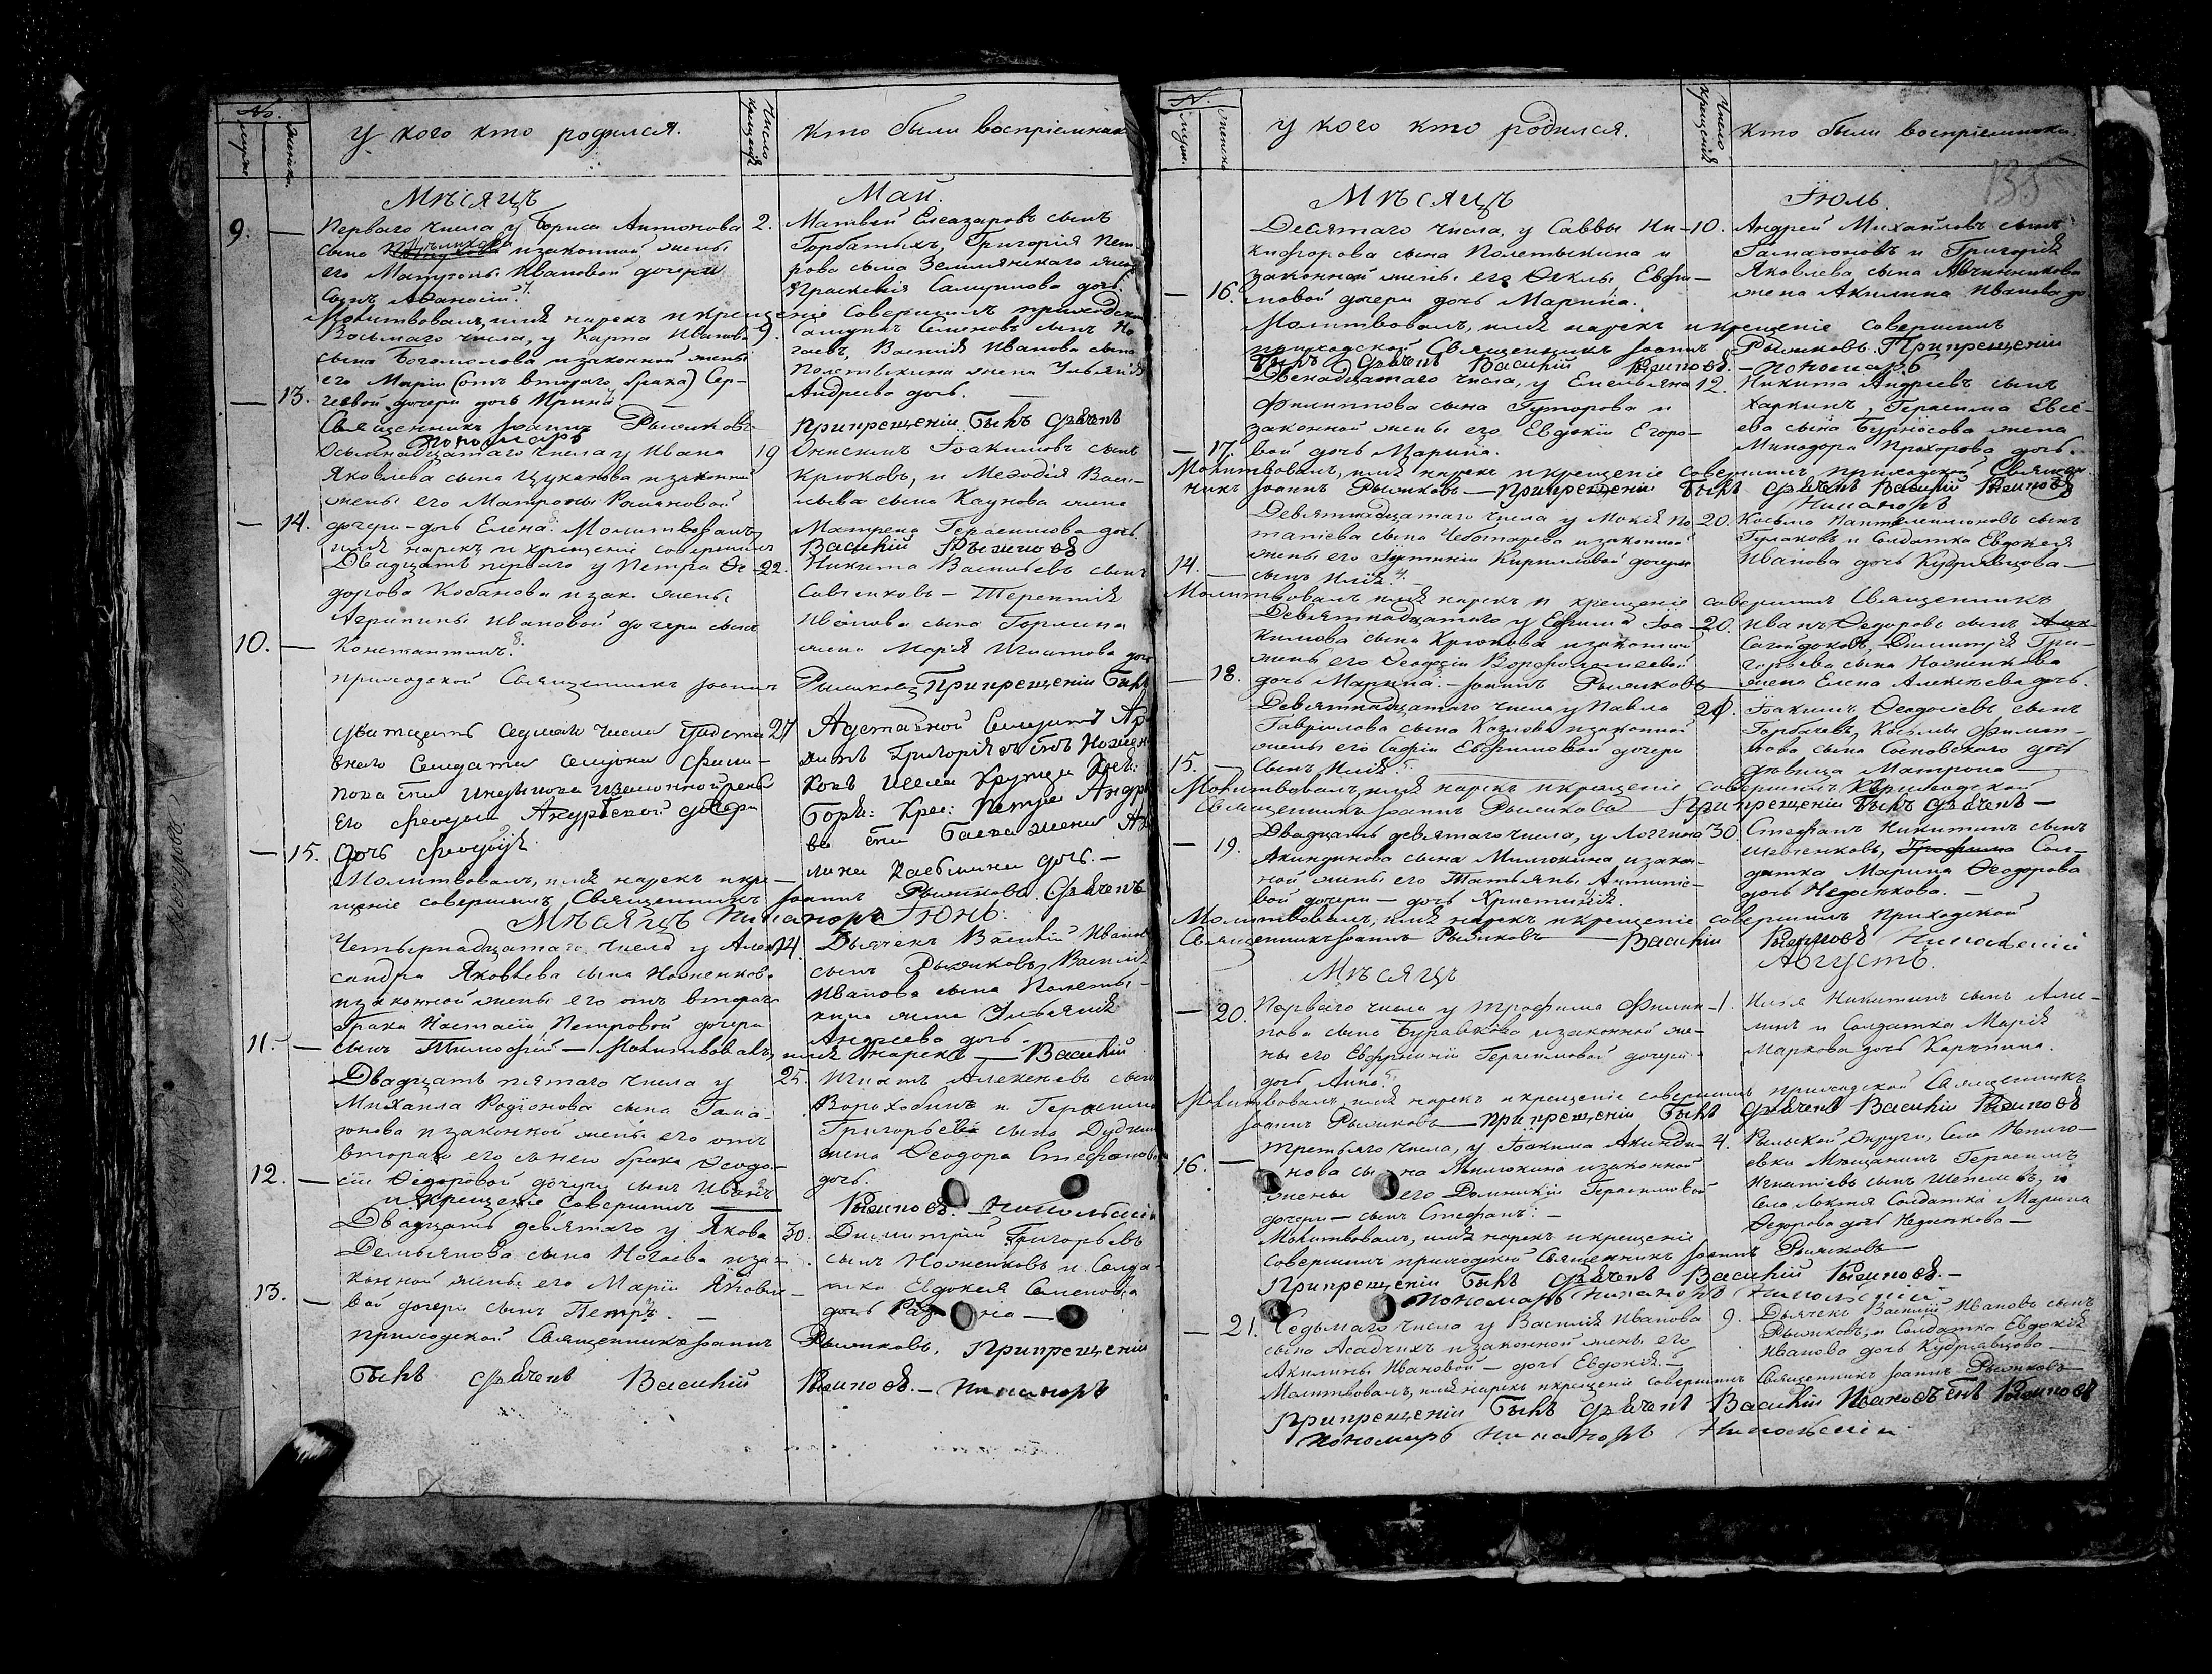 №.
мужс.
женск.
У кого кто родился.
Число крещенія
Кто были воспріемники
Мѣсяцъ
Май.
9. —
Перваго числа у Бориса Антонова
сына изаконной жены
его Матроны Ивановой дочери
сынъ Аѳанасій.
2.
Матвей Елеазаровъ сынъ
Горбатыхъ, Григорія Пет-
рова сына Землянскаго жена
Праскевія Самуилова дочь.
Молитвовалъ, имя нарекъ и крещеніе совершилъ приходской
Восьмаго числа, у Карпа Иванова
сына Богомолова изаконной жены
его Маріи (отъ втораго брака) Сер-
— 13. геевой дочери дочь Ирина
9.
Самуилъ Семеновъ сынъ Но-
гаевъ, Василія Иванова сына
Полетыкина жена Ульянія
Андреева дочь. —
Священникъ Іоаннъ Рыжковъ
Прикрещеніи былъ Дьячекъ
Пономарь
Осьмнадцатаго числа у Ивана
Яковлева сына Цуканова изаконной
жены его Матроны Романовой
— 14. дочери - дочь Елена. Молитвовалъ,
имя нарекъ и крещеніе совершилъ
19
Онисимъ Іоакимовъ сынъ
Крюковъ, и Меѳодія Васи-
льева сына Каунова жена
Матрена Герасимова дочь.
Василій Рыжковъ
Двадцать перваго у Петра Ѳе-
дорова Кобанова изак. жены
Агрипины Ивановой дочери сынъ
10. — Константинъ.
22.
Никита Васильевъ сынъ
Савенковъ — Терентія
Иванова сына Горлина
жена Марія Игнатова дочь
приходской Священникъ Іоаннъ
Рыжковъ Прикрещеніи былъ
его Ѳеодосіи дочери
— 15. Дочь Ѳеодосія.
27
Григорія
дочь. —
Молитвовалъ, имя нарекъ и кре-
щеніе совершилъ Священникъ
Іоаннъ Рыжковъ Дьячекъ
Мѣсяцъ Никаноръ Іюнь.
Четырнадцатаго числа у Алек-
сандра Яковлева сына Ноженкова
изаконной жены его отъ втораго
брака Настасіи Петровой дочери
11. — сынъ Тимофій — Молитвовалъ, имя нарекъ — Василій
14.
Дьячекъ Василій Ивановъ
сынъ Рыжковъ, Василія
Иванова сына Полеты-
кина жена Ульянія
Андреева дочь.
Двадцать пятаго числа у
Михаила Родіонова сына Гама-
юнова изаконной жены его отъ
втораго его сънею брака Ѳеодо-
12. — сіи Ѳедоровой дочери сынъ Иванъ
и крещеніе совершилъ
25.
Игнатъ Алексеевъ сынъ
Ворохобинъ и Герасима
Григорьева сына Дудкина
жена Ѳеодора Стефанова
дочь.
Рыжковъ. Никольскій
Двадцать девятаго у Якова
Демьянова сына Ногаева иза-
конной жены его Маріи Яковле-
13. — вой дочери сынъ Петръ. —
30.
Димитрій Григорьевъ
сынъ Ноженковъ и Солда-
тка Евдокея Семенова
дочь
приходской Священникъ Іоаннъ
Рыжковъ, Прикрещеніи
былъ Дьячекъ Василій
Рыжковъ. — Никаноръ
№.
мужс.
женск.
У кого кто родился.
Число крещенія
Кто были воспріемники.
135
Мѣсяцъ
Іюль.
Десятаго числа, у Саввы Ни-
кифорова сына Полетыкина и
законной жены его Ѳеклы Евфи-
— 16. мовой дочери дочь Марина.
10.
Андрей Михайловъ сынъ
Гамаюновъ и Григорія
Яковлева сына Авчинникова
жена Акилина Иванова до.
Молитвовалъ, имя нарекъ и крещеніе совершилъ
приходской Священникъ Іоаннъ Рыжковъ. Прикрещеніи
былъ Дьячекъ Василій Рыжковъ. — пономарь
Двенадцатаго числа, у Емельяна
Филиппова сына Гуторова и
законной жены его Евдокіи Егоро-
— 17. вой дочь Марина.
12.
Никита Андреевъ сынъ
Харкинъ, Герасима Евсе-
ева сына Бурносова жена
Минодора Прохорова дочь.
Молитвовалъ, имя нарекъ и крещеніе совершилъ приходской Священ-
никъ Іоаннъ Рыжковъ — Прикрещеніи былъ Дьячекъ Василій Рыжковъ
Никаноръ
Девятнадцатаго числа у Мокія По-
тапіева сына Чеботарева изаконной
жены его Іустиніи Кириловой дочери
14. — сынъ Илія.
20.
Косьма Пантелеимоновъ сынъ
Гулаковъ и Солдатка Евдокея
Иванова дочь Кудрявцова —
Молитвовалъ имя нарекъ и крещеніе совершилъ Священникъ
Девятнадцатаго у Ефима Іоа-
кимова сына Крюкова изаконной
жены его Ѳеодосіи Ворфоломеевой
— 18. дочь Марина. — Іоаннъ Рыжковъ
20.
Иванъ Ѳедоровъ сынъ
Сагайдоковъ, Димитрія Гри-
горьева сына Ноженкова
жена Елена Алексѣева дочь.
Девятнадцатаго числа у Павла
Гаврилова сына Козлова изаконной
жены его Софіи Евфимовой дочери
15. — сынъ Илія.
20.
Іоакимъ Ѳеодосіевъ сынъ
Горбачевъ, Косьмы Филип-
пова сына Сосновскаго дочь
дѣвица Матрона —
Молитвовалъ, имя нарекъ и крещеніе совершилъ приходской
Священникъ Іоаннъ Рыжковъ Прикрещеніи былъ Дьячекъ —
Двадцать девятаго числа, у Логгина
— 19. Акиндинова сына Милюкина изакон-
ной жены его Татьяны Антипіе-
вой дочери — дочь Христинія.
30
Стефанъ Никитинъ сынъ
Шевченковъ, Сол-
датка Марина Ѳеодорова
дочь Недосѣкова. —
Молитвовалъ, имя нарекъ и крещеніе совершилъ приходской
Священникъ Іоаннъ Рыжковъ — Василій Рыжковъ Никольскій
Мѣсяцъ
Августъ.
Перваго числа у Трофима Филип-
— 20. пова сына Буравкова изаконной же-
ны его Евфросиніи Герасимовой дочери
дочь Анна.
1.
Илія Никитинъ сынъ Али-
минъ и Солдатка Марія
Маркова дочь Карпина.
Молитвовалъ, имя нарекъ и крещеніе совершилъ приходской Священникъ
Іоаннъ Рыжковъ — Прикрещеніи былъ Дьячекъ Василій Рыжковъ
Третьяго числа, у Іоакима Акинди-
16. — нова сына Милюкина изаконной
жены его Домникіи Герасимовой
дочери — сынъ Стефанъ. —
4.
Рыльской Округи, Села
Мещанинъ Герасимъ
Игнатіевъ сынъ и
Села Локтя Солдатка Марина
Ѳедорова дочь Недосѣкова —
Молитвовалъ, имя нарекъ и крещеніе
совершилъ приходской Священникъ Іоаннъ Рыжковъ —
Прикрещеніи былъ Дьячекъ Василій Рыжковъ. —
Пономарь Никаноръ Никольскій
— 21. Седьмаго числа у Василія Иванова
сына Асадчихъ изаконной жены его
Акилины Ивановой — дочь Евдокія. —
9.
Дьячекъ Василій Ивановъ сынъ
Рыжковъ, и Солдатка Евдокія
Иванова дочь Кудрявцова —
Молитвовалъ, имя нарекъ и крещеніе совершилъ Священникъ Іоаннъ Рыжковъ
Прикрещеніи былъ Дьячекъ Василій Ивановъ снъ Рыжковъ
Пономарь Никаноръ Никольскій